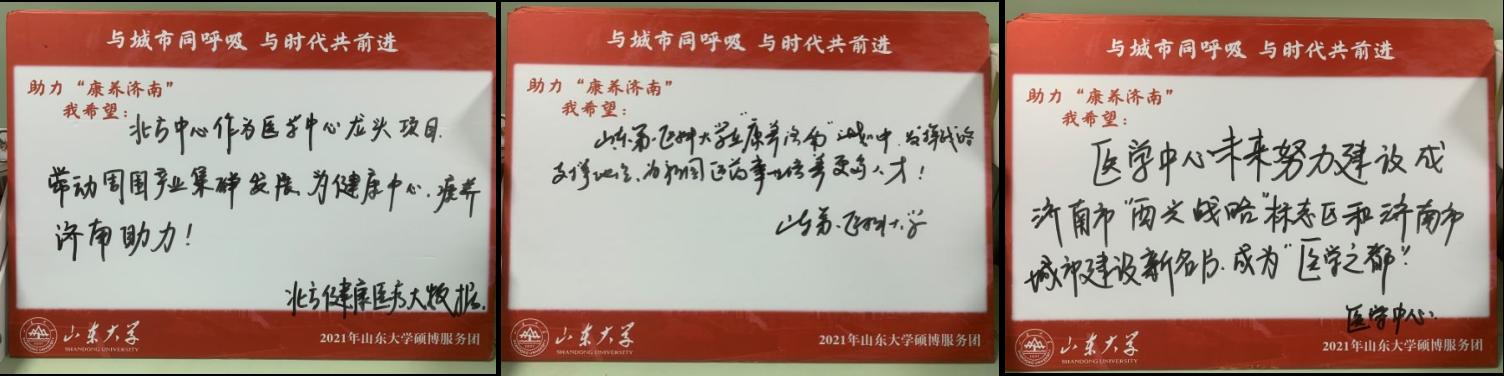 与城市同呼吸 与时代共前进
助力“康养济南”
我希望:
北方中心作为医学中心龙头项目.
带动周围产业集群发展,为健康中心.康养
济南助力!
北方健康医疗大数据.
山东大学
SHANDONG UNIVERSITY
2021年山东大学硕博服务团
与城市同呼吸 与时代共前进
助力“康养济南”
我希望:
山东第一医科大学在“康养济南”计划中.发挥战略
支撑地位,为祖国医药事业培养更多人才!
山东第一医科大学
山东大学
SHANDONG UNIVERSITY
2021年山东大学硕博服务团
与城市同呼吸 与时代共前进
助力“康养济南”
我希望:
医学中心未来努力建设成
济南市“西兴战略”标志区和济南市
城市建设新名片.成为“医学之都”.
医学中心.
山东大学
SHANDONG UNIVERSITY
2021年山东大学硕博服务团